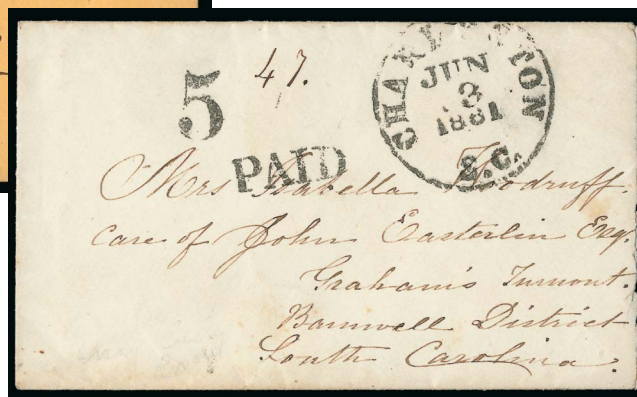 47.
5
PAID
CHARLESTON
JUN
3
1861
S.C.
Mrs Isabella Woodruff.
care of John Easterlin Esq.
Graham's Turnout.
Barnwell District
South Carolina.